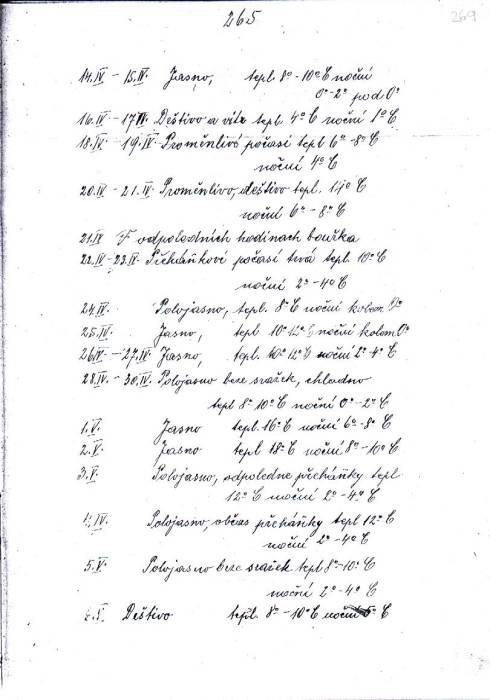 265
269
14.IV – 15.IV. Jasno, tepl 8°-10°C noční
0°-2° pod 0°
16.IV – 17.IV. Deštivo a vítr tepl 4°C noční 1°C
18.IV – 19.IV. Proměnlivé počasí tepl 6°-8°C
noční 4°C
20.IV – 21.IV. Proměnlivo, deštivo tepl. 14°C
noční 6°-8°C
21.IV V odpoledních hodinach bouřka
22.IV – 23.IV. Přeháňkové počasí trvá tepl. 10°C
noční 2°-4°C
24.IV. Polojasno, tepl. 8°C noční kolem 0°
25.IV. Jasno, tepl 10°12°C noční kolem 0°
26.IV – 27.IV. Jasno, tepl. 10°12°C noční 2°-4°C
28.IV. – 30.IV. Polojasno beze sražek, chladno
tepl 8°-10°C noční 0°-2°C
1.V. Jasno tepl. 16°C noční 6°-8°C
2.V. Jasno tepl 18°C noční 8°-10°C
3.V. Polojasno, odpoledne přeháňky tepl
12°C noční 2°-4°C
4.IV. Polojasno, občas přeháňky tepl 12°C
noční 2°-4°C
5.V. Polojasno beze sražek tepl 8°-10°C
noční 2°-4°C
Deštivo tepl. 8°-10°C noční 5°C